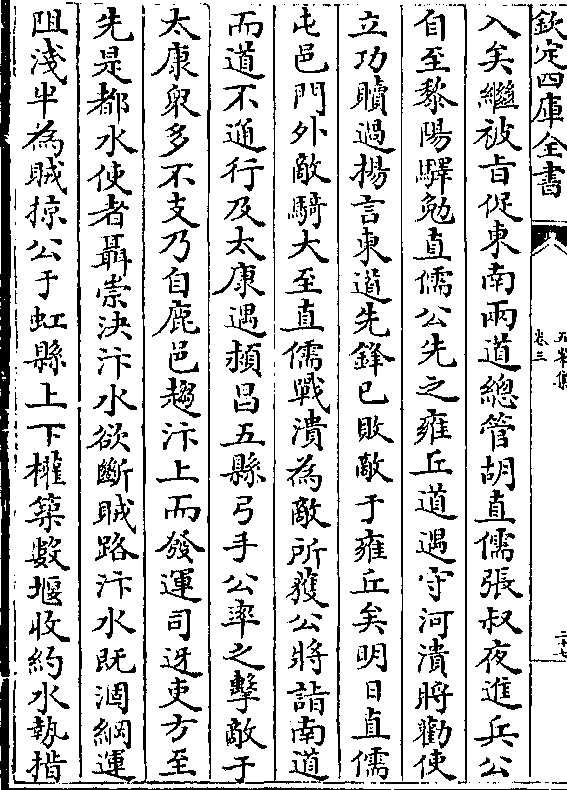 欽定四庫全書
卷三
入矣繼被旨促東南兩道總管胡直儒張叔夜進兵公
自至黎陽驛勉直儒公先之雍丘道遇守河潰將勸使
立功贖過揚言東道先鋒已敗敵于雍丘矣明日直儒
屯邑門外敵騎大至直儒戰潰為敵所獲公將詣南道
而道不通行及太康遇潁昌五縣弓手公率之擊敵于
太康衆多不支乃自鹿邑趨汴上而發運司迓吏方至
先是都水使者聶崇決汴水欲斷賊路汴水既涸綱運
阻淺半為賊掠公于虹縣上下權築數堰收約水執措